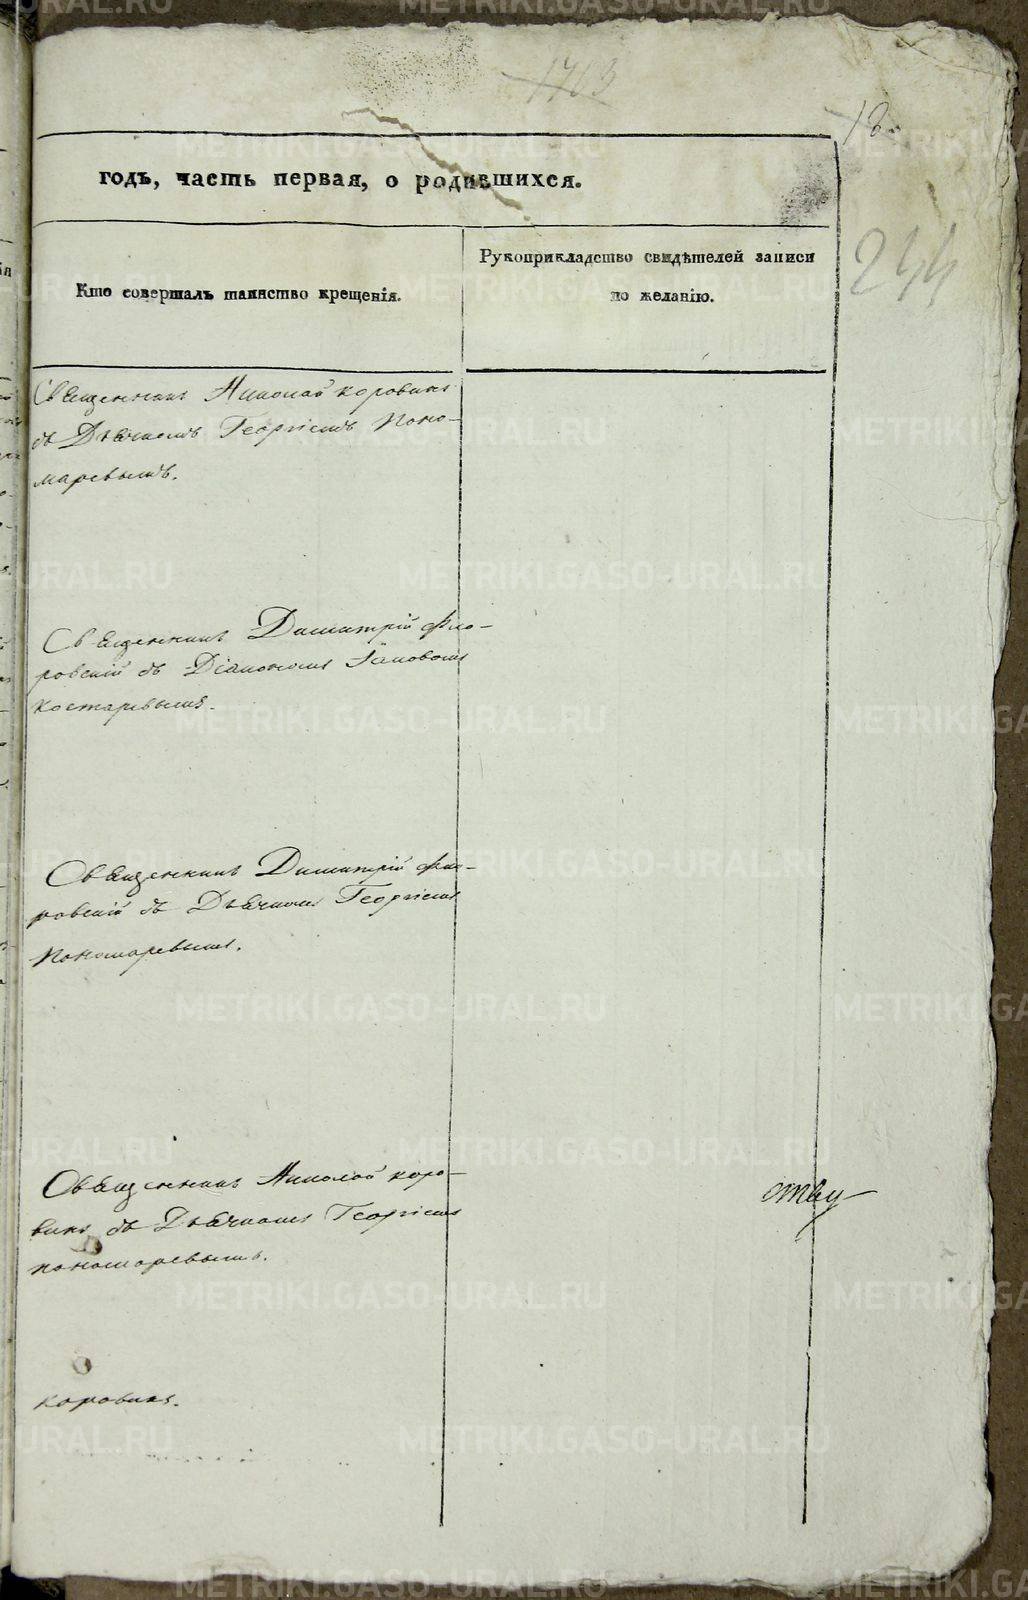 1703
18
годъ, часть первая, о родившихся.
244
Кто совершалъ таинство крещенія.
Рукоприкладство свидѣтелей записи
по желанію.
Священникъ Николай Коровинъ
съ Дьячкомъ Георгіемъ Поно-
маревымъ.
Священникъ Димитрій Фло-
ровскій съ Діакономъ Іаковомъ
Костаревымъ.
Священникъ Димитрій Фло-
ровскій съ Дьячкомъ Георгіемъ
Пономаревымъ.
Священникъ Николай Коро-
винъ съ Дьячкомъ Георгіемъ
Пономаревымъ.
ству
Коровинъ.
METRIKI.GASO-URAL.RU